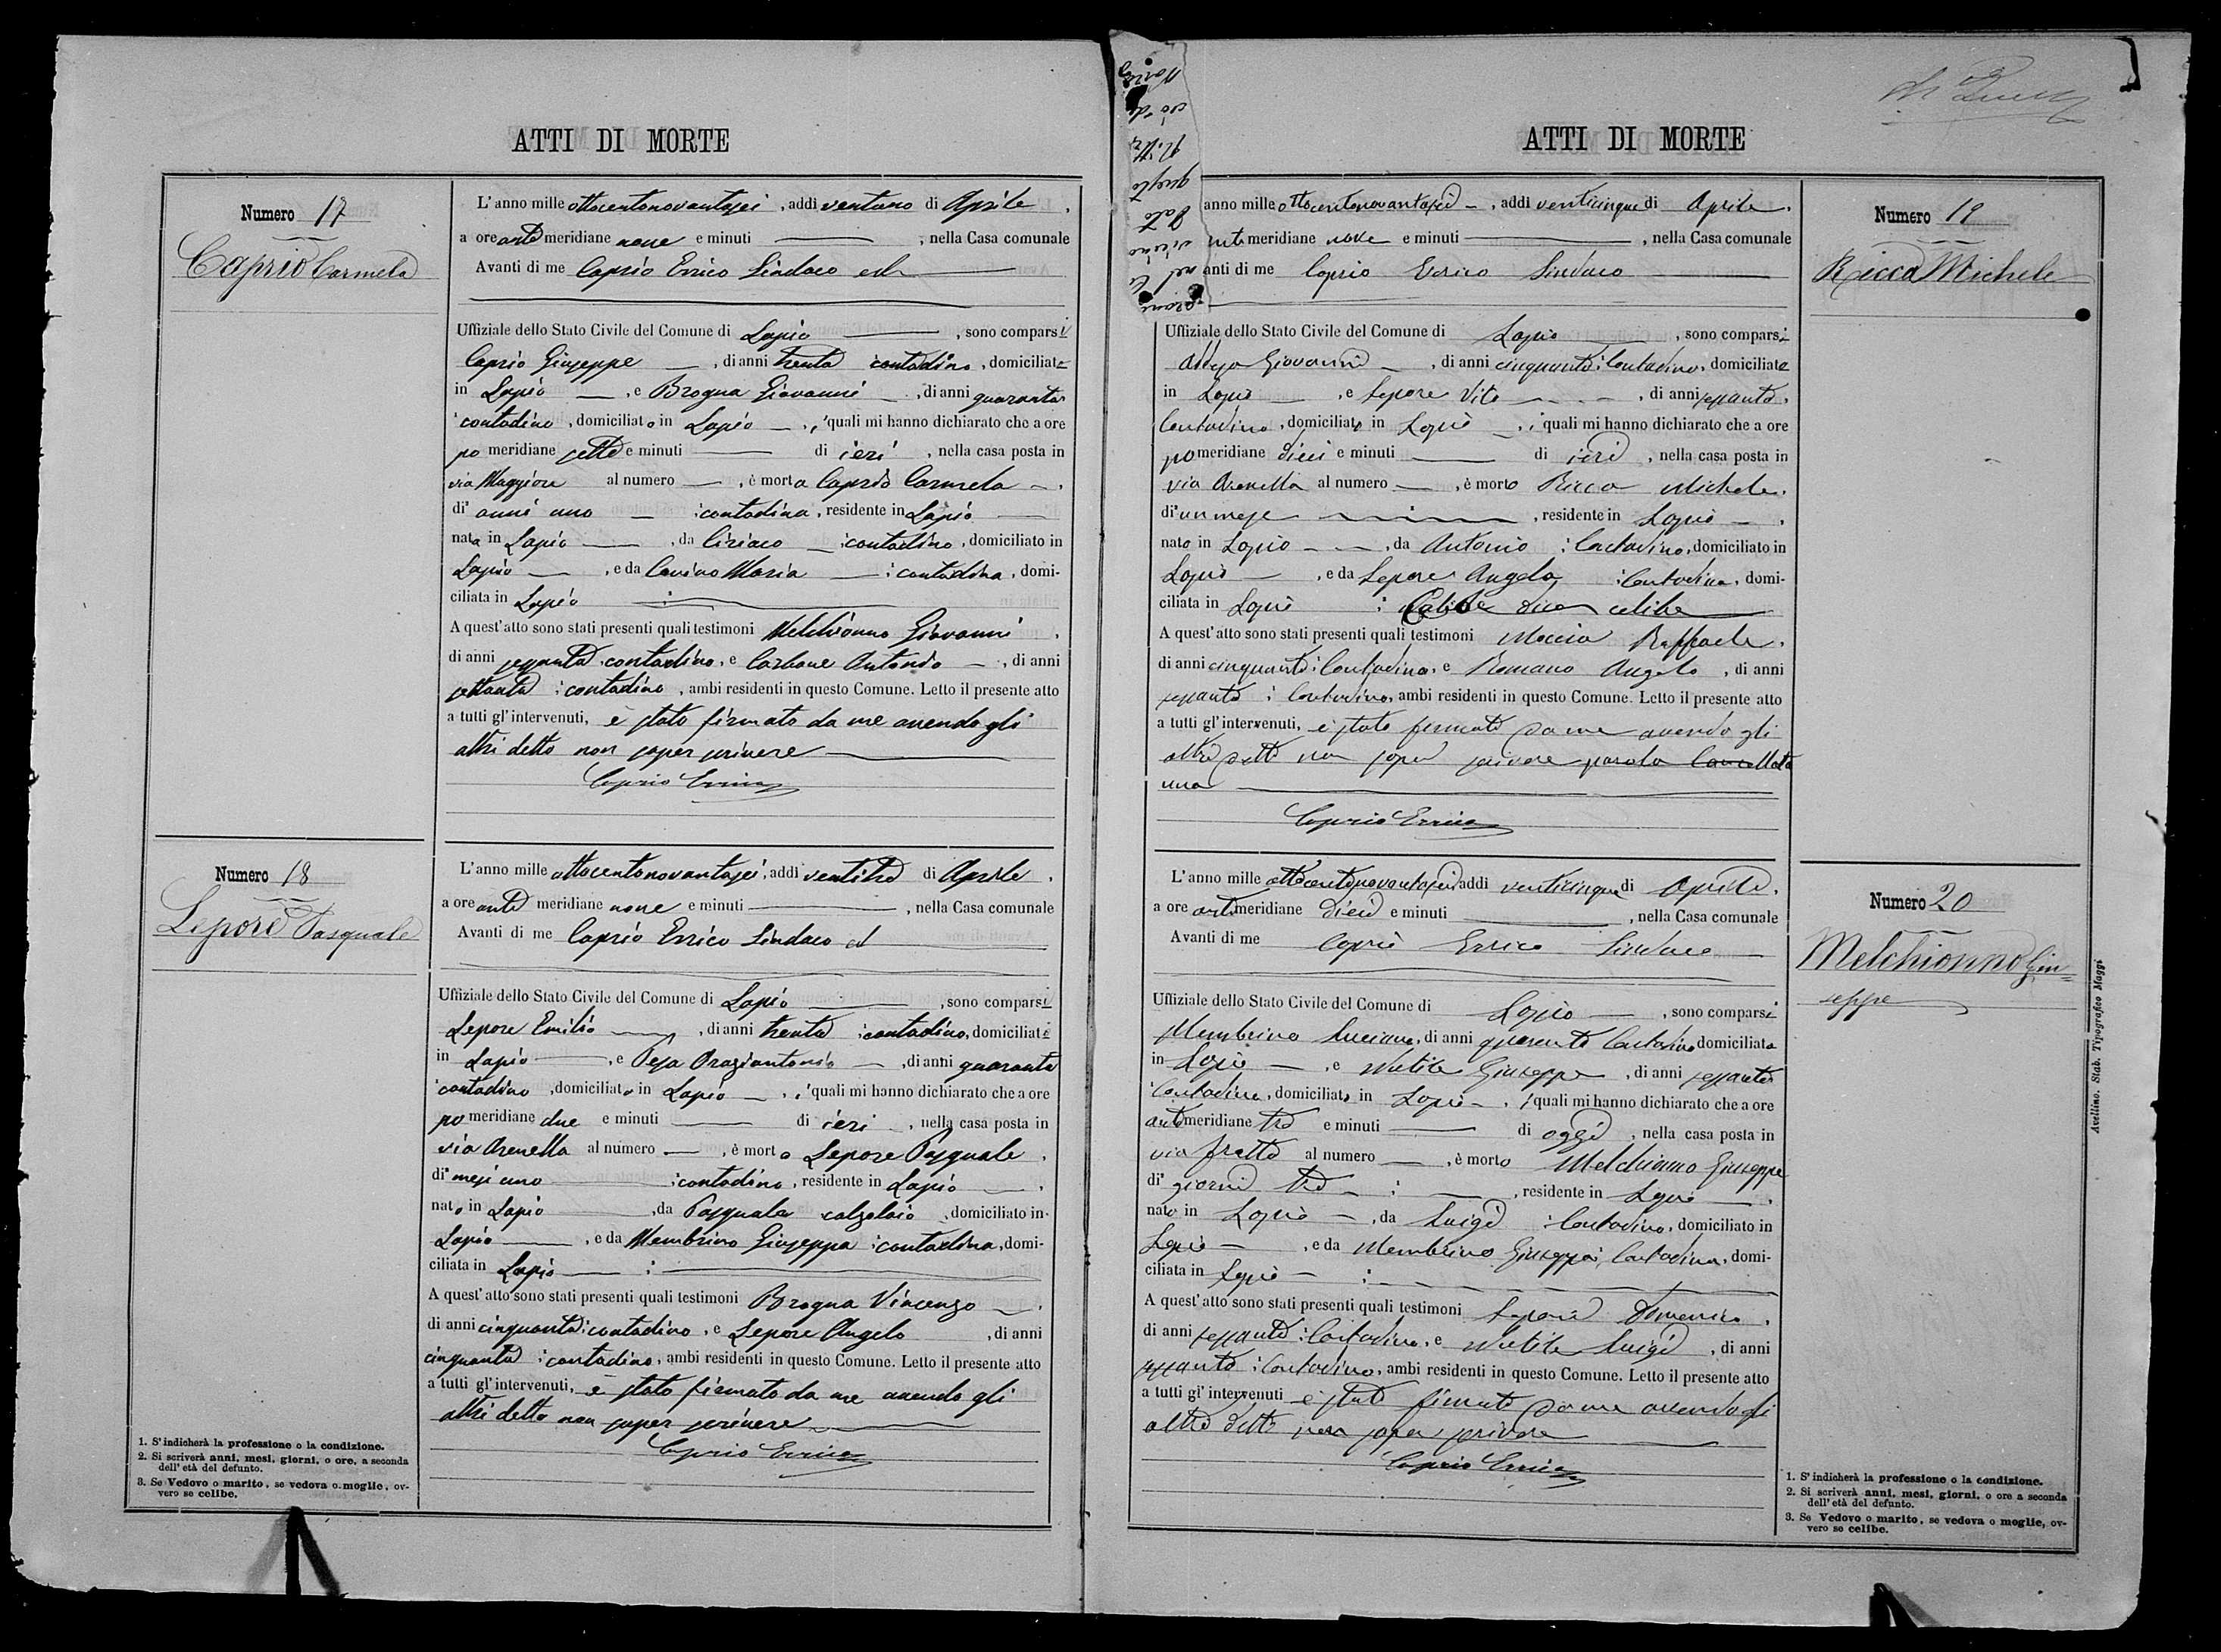 ATTI DI MORTE
Numero 17
Caprio Carmela
L'anno mille ottocentonovantasei, addì ventuno di Aprile,
a ore ante meridiane nove e minuti —, nella Casa comunale
Avanti di me Caprio Errico Sindaco ed
Uffiziale dello Stato Civile del Comune di Lapio —, sono comparsi
Caprio Giuseppe —, di anni trenta contadino, domiciliato
in Lapio —, e Brogna Giovanni —, di anni quaranta
contadino, domiciliato in Lapio —, i quali mi hanno dichiarato che a ore
po meridiane sette e minuti — di ieri, nella casa posta in
via Maggiore al numero —, è morta Caprio Carmela —,
di anni uno — contadina, residente in Lapio —
nata in Lapio —, da Ciriaco — contadino, domiciliato in
Lapio —, e da Carino Maria — contadina, domi-
ciliata in Lapio :
A quest'atto sono stati presenti quali testimoni Melchionno Giovanni,
di anni sessanta, contadino, e Carbone Antonio —, di anni
settanta contadino, ambi residenti in questo Comune. Letto il presente atto
a tutti gl'intervenuti, è stato firmato da me avendo gli
altri detto non saper scrivere
Caprio Errico
Numero 18
Lepore Pasquale
L'anno mille ottocentonovantasei, addì ventitre di Aprile,
a ore ante meridiane nove e minuti —, nella Casa comunale
Avanti di me Caprio Errico Sindaco ed
Uffiziale dello Stato Civile del Comune di Lapio —, sono comparsi
Lepore Emilio —, di anni trenta contadino, domiciliato
in Lapio —, e Pesa Oraziantonio —, di anni quaranta
contadino, domiciliato in Lapio —, i quali mi hanno dichiarato che a ore
po meridiane due e minuti — di ieri, nella casa posta in
via Arenella al numero —, è morto Lepore Pasquale,
di mesi uno — contadino, residente in Lapio —,
nato in Lapio —, da Pasquale calzolaio, domiciliato in
Lapio —, e da Membrino Giuseppa contadina, domi-
ciliata in Lapio — :
A quest'atto sono stati presenti quali testimoni Brogna Vincenzo —,
di anni cinquanta contadino, e Lepore Angelo, di anni
cinquanta contadino, ambi residenti in questo Comune. Letto il presente atto
a tutti gl'intervenuti, è stato firmato da me avendo gli
altri detto non saper scrivere
Caprio Errico
1. S'indicherà la professione o la condizione.
2. Si scriverà anni, mesi, giorni, o ore, a seconda
dell'età del defunto.
3. Se Vedovo o marito, se vedova o moglie, ov-
vero se celibe.
ATTI DI MORTE
Numero 19
Ricca Michele
anno mille ottocentonovantasei —, addì venticinque di Aprile,
meridiane nove e minuti —, nella Casa comunale
anti di me Caprio Errico Sindaco
Uffiziale dello Stato Civile del Comune di Lapio, sono comparsi
Giovanni —, di anni cinquanta contadino, domiciliato
in Lapio —, e Lepore Vito —, di anni sessanta,
Contadino, domiciliato in Lapio —, i quali mi hanno dichiarato che a ore
po meridiane dieci e minuti — di ieri, nella casa posta in
via Arenella al numero —, è morto Ricca Michele,
di un mese —, residente in Lapio —,
nato in Lapio —, da Antonio : Contadino, domiciliato in
Lapio —, e da Lepore Angela : Contadina, domi-
ciliata in Lapio : Celibe dico celibe
A quest'atto sono stati presenti quali testimoni Moccia Raffaele,
di anni cinquanta : Contadino, e Romano Angelo, di anni
sessanta : Contadino, ambi residenti in questo Comune. Letto il presente atto
a tutti gl'intervenuti, è stato firmato da me avendo gli
altri detto non saper scrivere parola cancellata
una
Caprio Errico
Numero 20
Melchionno Giu=
seppe
L'anno mille ottocentonovantasei addì venticinque di Aprile,
a ore ante meridiane dieci e minuti —, nella Casa comunale
Avanti di me Caprio Errico Sindaco
Uffiziale dello Stato Civile del Comune di Lapio —, sono comparsi
Membrino Luciano, di anni quaranta Contadino domiciliato
in Lapio —, e Giuseppe, di anni sessanta
Contadino, domiciliato in Lapio —, i quali mi hanno dichiarato che a ore
ante meridiane tre e minuti — di oggi, nella casa posta in
via fratta al numero —, è morto Melchionno Giuseppe
di giorni tre — : —, residente in Lapio —,
nato in Lapio —, da Luigi : Contadino, domiciliato in
Lapio —, e da Membrino Giuseppa : Contadina, domi-
ciliata in Lapio — :
A quest'atto sono stati presenti quali testimoni Lepore Domenico,
di anni sessanta : Contadino, e Luigi, di anni
sessanta : Contadino, ambi residenti in questo Comune. Letto il presente atto
a tutti gl'intervenuti è stato firmato da me avendo gli
altri detto non saper scrivere
Caprio Errico
1. S'indicherà la professione o la condizione.
2. Si scriverà anni, mesi, giorni, o ore a seconda
dell'età del defunto.
3. Se Vedovo o marito, se vedova o moglie, ov-
vero se celibe.
Avellino. Stab. Tipografico Maggi